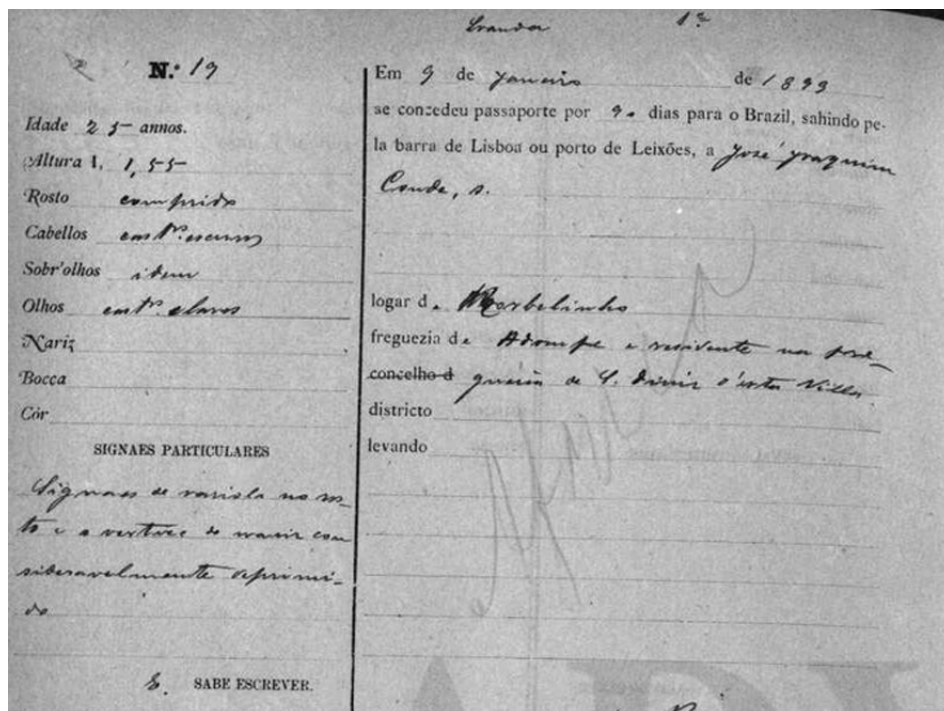 1ª
N.º 19
Idade 25 annos.
Altura 1, 1,55
Rosto comprido
Cabellos castº. escuros
Sobr'olhos idem
Olhos castº. claros
Nariz
Bocca
Côr
SIGNAES PARTICULARES
Signaes de variola no ros-
to e o vertice do nariz con
sideravelmente deprimi-
do
S. SABE ESCREVER.
Em 9 de Janeiro de 1899
se concedeu passaporte por 90 dias para o Brazil, sahindo pe-
la barra de Lisboa ou porto de Leixões, a José Joaquim
Conde, s.
logar de
freguezia de Adoufe e residente na fre-
concelho d guezia de S. Diniz d'esta Villa.
districto
levando